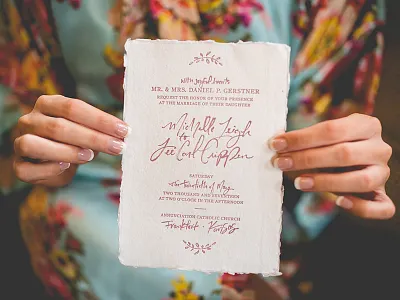 with joyful hearts
MR. & MRS. DANIEL P. GERSTNER
REQUEST THE HONOR OF YOUR PRESENCE
AT THE MARRIAGE OF THEIR DAUGHTER
Michelle Leigh
to
Lee Carl Crippen
SATURDAY
the twentieth of May
TWO THOUSAND AND SEVENTEEN
AT TWO O'CLOCK IN THE AFTERNOON
ANNUNCIATION CATHOLIC CHURCH
Frankfort · Kansas